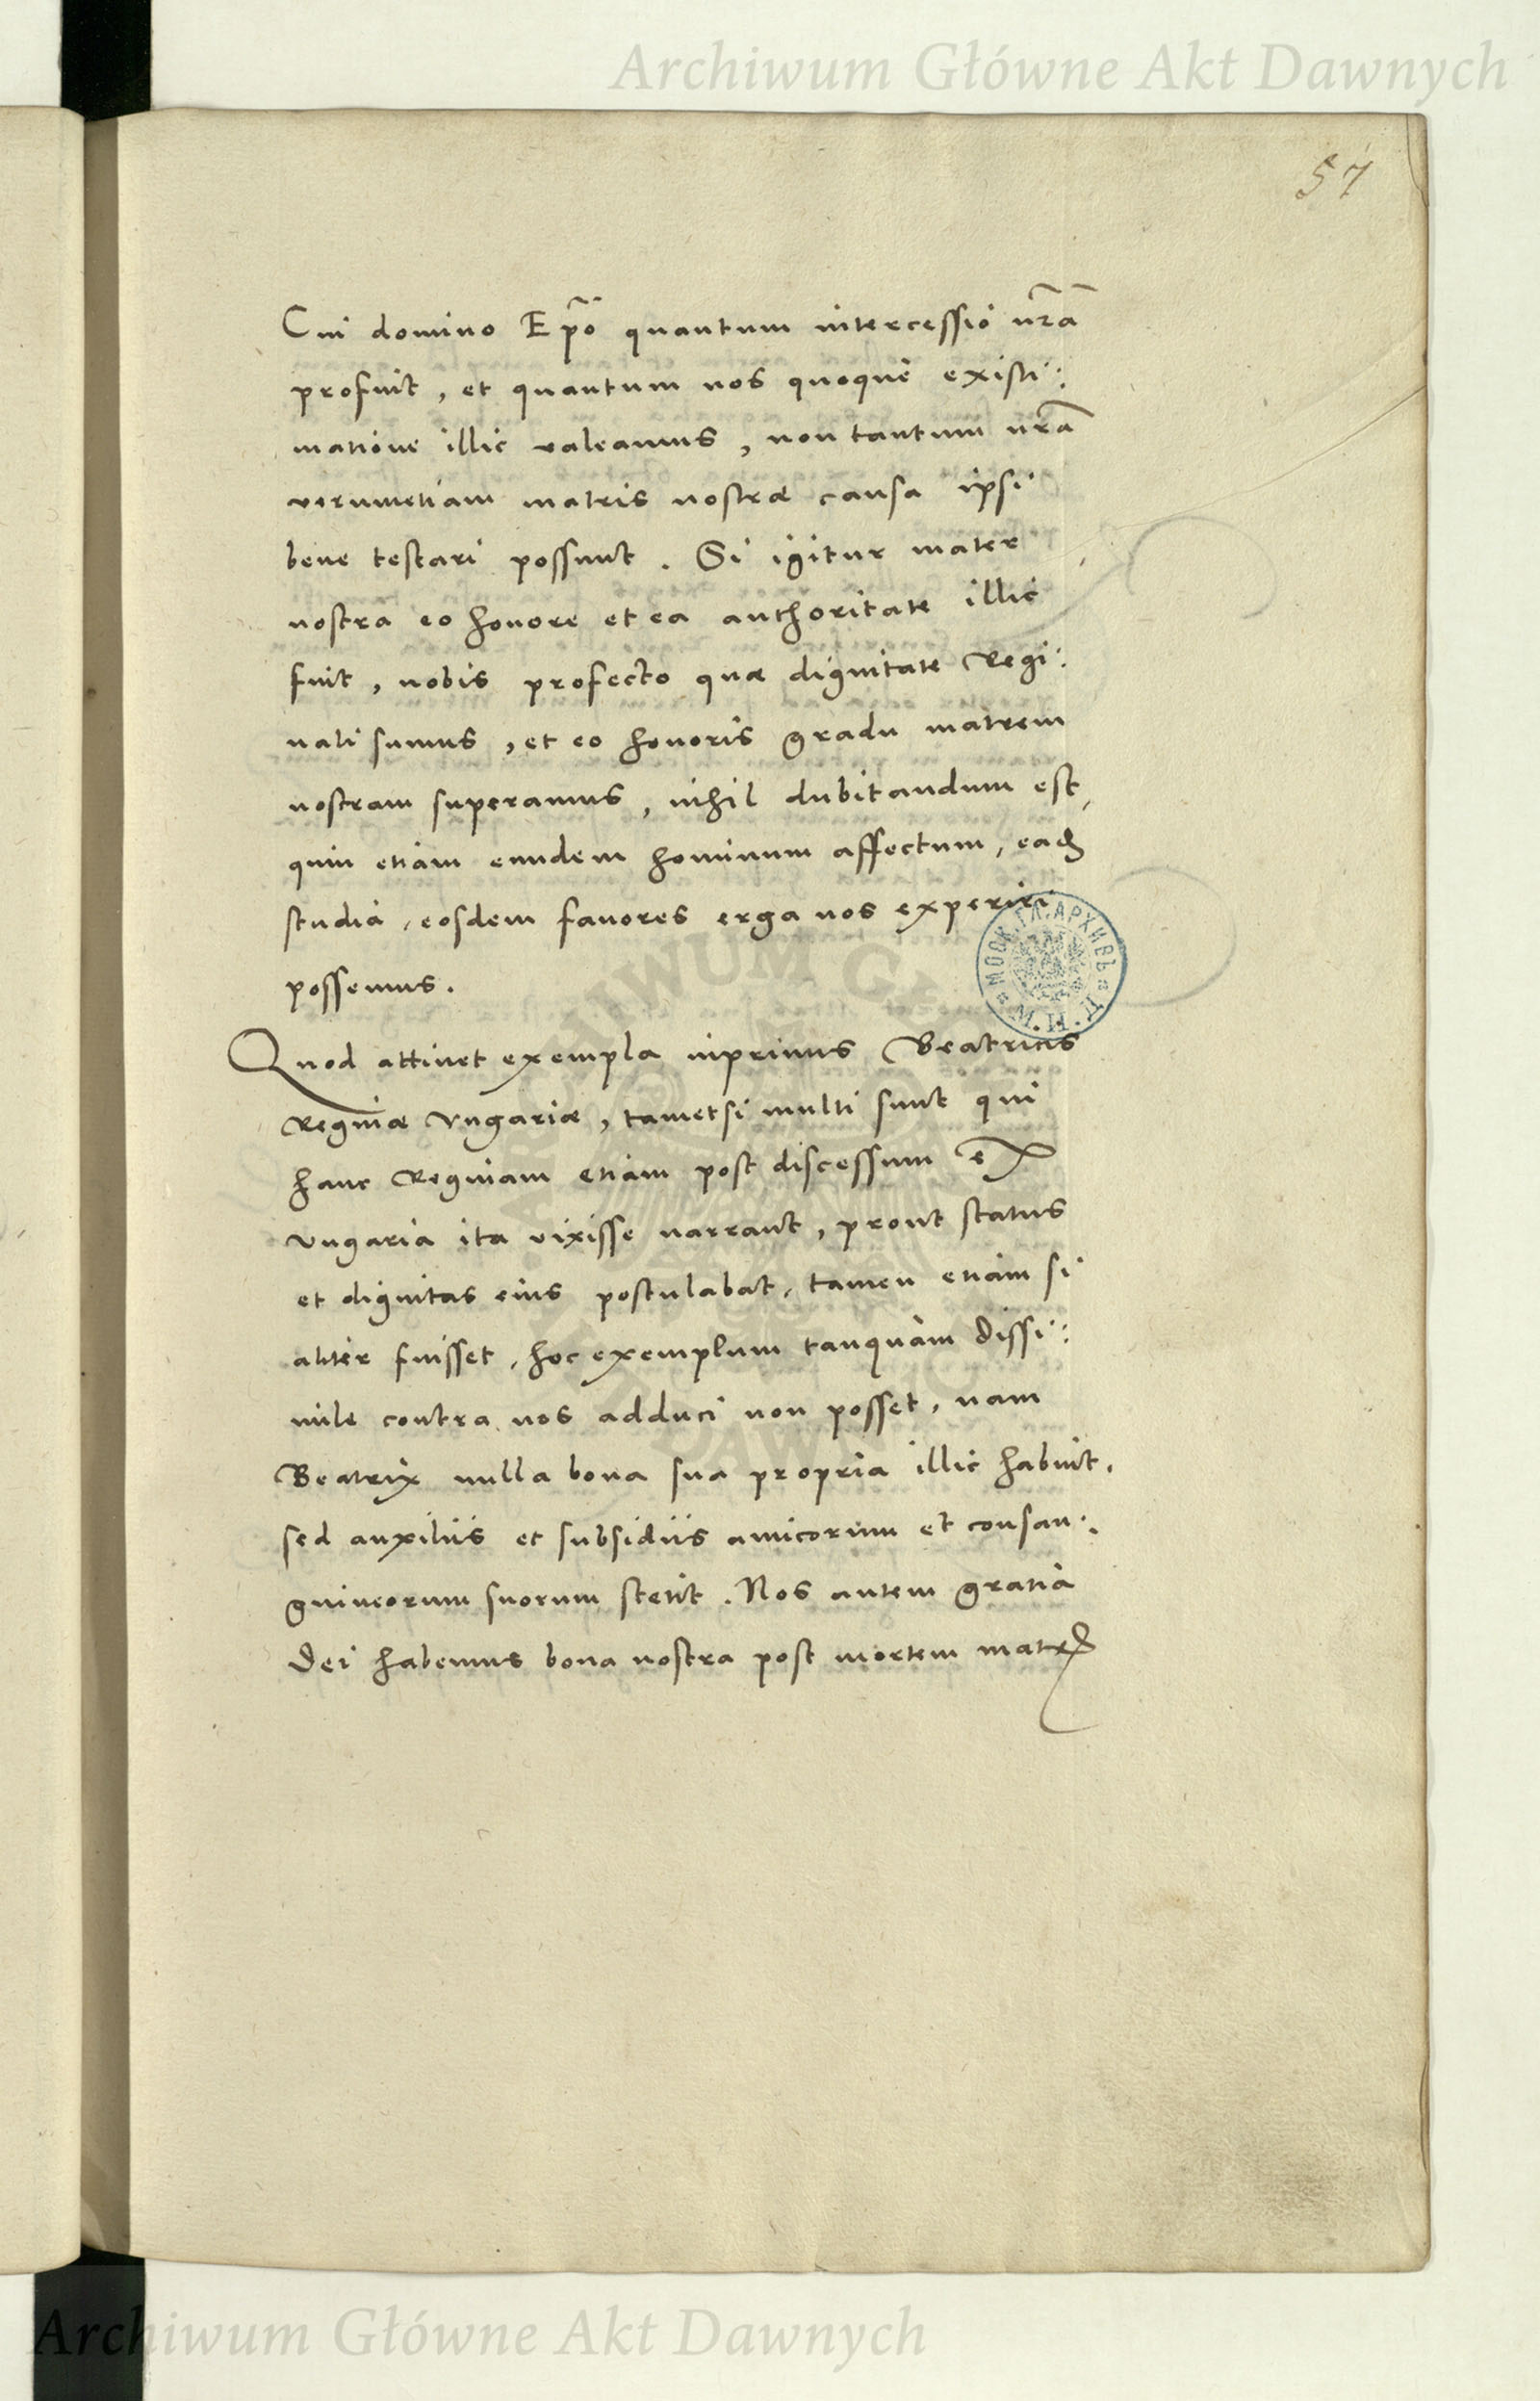 Archiwum Główne Akt Dawnych
57
Cui domino Ep̃o quantum intercessio nr̃a
profuit, et quantum nos quoque existi:
matione illic valeamus, non tantum nr̃a
verumetiam matris nostræ causa ipsi
bene testari possunt. Si igitur mater
nostra eo honore et ea authoritate illic
fuit, nobis profecto quæ dignitate Regi:
nali sumus, et eo honoris gradu matrem
nostram superamus, nihil dubitandum est,
quin etiam eundem hominum affectum, eadē
studia, eosdem favores erga nos experiri
possemus.
МОСК. ГЛ. АРХИВЪ
Quod attinet exempla inprimis Beatricis
Reginæ Ungariæ, tametsi multi sunt qui
hanc Reginam etiam post discessum ex
Ungaria ita vixisse narrant, prout status
et dignitas eius postulabat, tamen etiam si
aliter fuisset, hoc exemplum tanquam dissi:
mile contra nos adduci non posset, nam
Beatrix nulla bona sua propria illic habuit,
sed auxiliis et subsidiis amicorum et consan:
guineorum suorum stetit. Nos autem gratia
Dei habemus bona nostra post mortem matris
Archiwum Główne Akt Dawnych